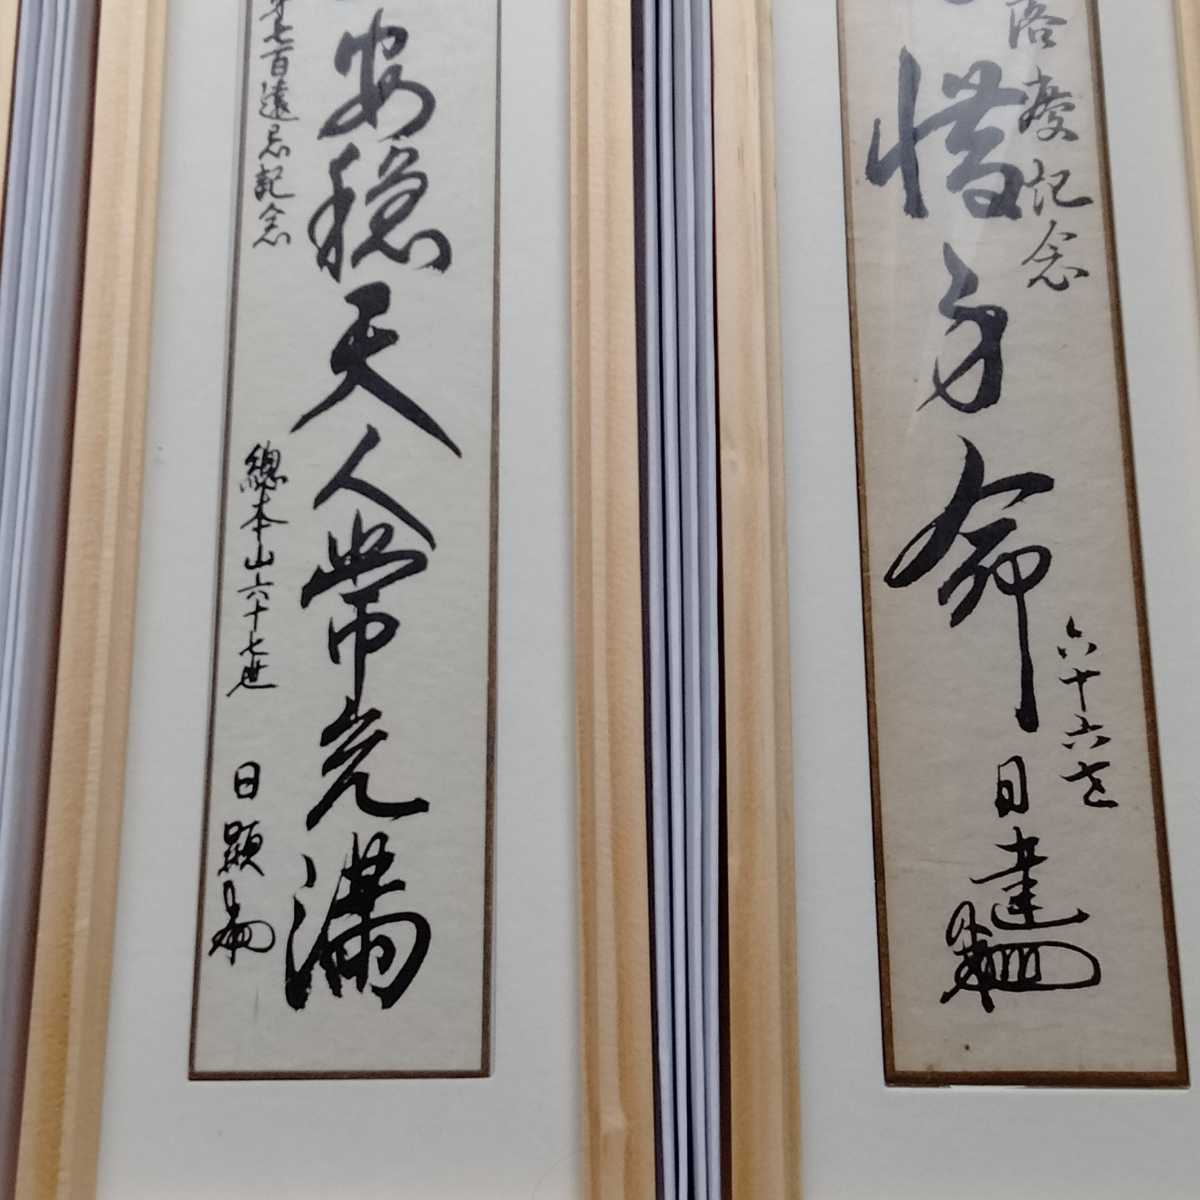 落慶記念
惜身命
六十六世
日達
安穏天人常充満
第七百遠忌記念
總本山六十七世
日顕